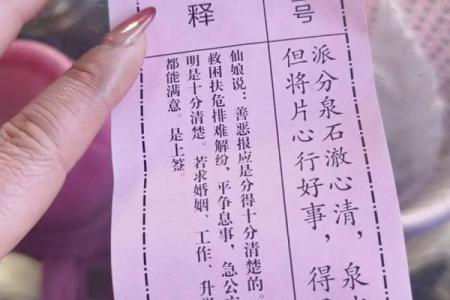 号
派分泉石澈心清，泉
但将片心行好事，得
释
仙娘说：善恶报应是分得十分清楚的。
救困扶危排难解纷，平争息事，急公
明是十分清楚。若求婚姻、工作、升学
都能满意。是上签。